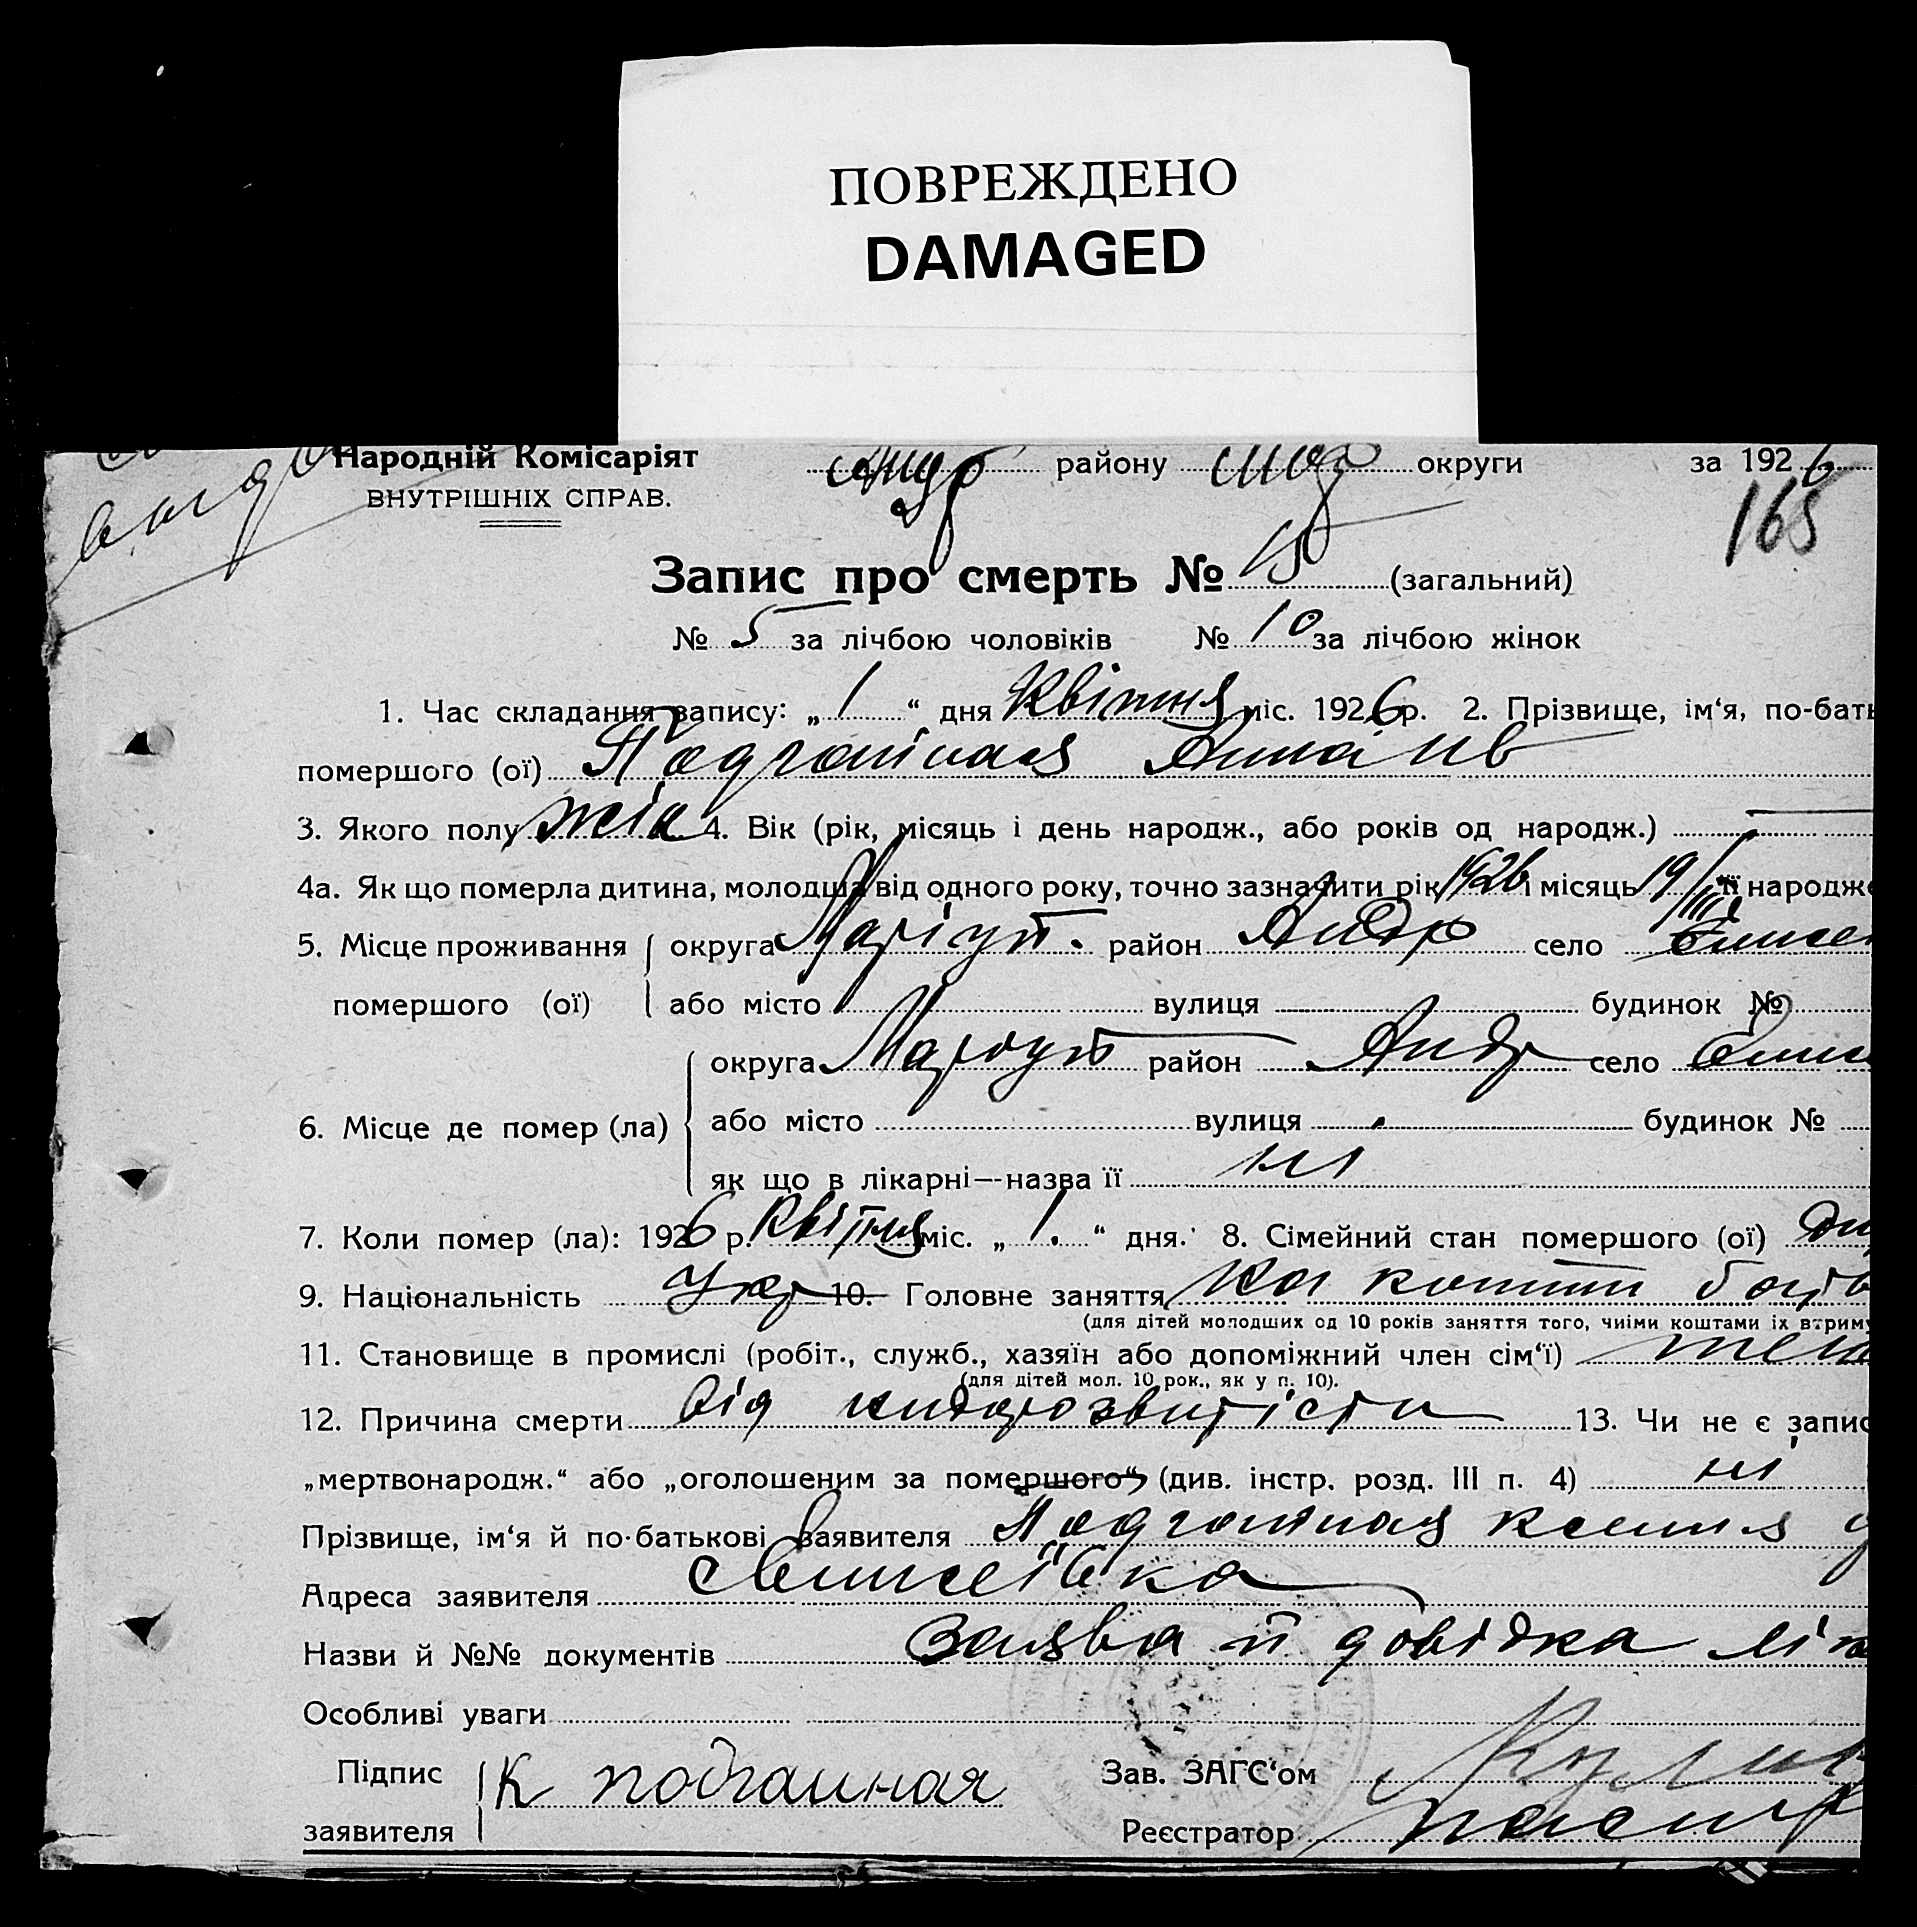 ПОВРЕЖДЕНО
DAMAGED
Народній Комісаріят району округи за 1926
ВНУТРІШНІХ СПРАВ.
165
Запис про смерть № 15 (загальний)
№ 5 за лічбою чоловіків № 10 за лічбою жінок
1. Час складання запису: „ 1 “ дня Квітня міс. 1926 р. 2. Прізвище, ім‘я, по-бать
помершого (ої)
3. Якого полу жін 4. Вік (рік, місяць і день народж., або років од народж.) —
4а. Як що померла дитина, молодша від одного року, точно зазначити рік 1926 і місяць 19/III її народже
5. Місце проживання округа Маріуп. район Андр село Елисе
помершого (ої) або місто вулиця будинок №
округа Маріуп район Андр село
6. Місце де помер (ла) або місто вулиця будинок №
як що в лікарні—назва її ні
7. Коли помер (ла): 1926 р. Квітня міс. „ 1. “ дня. 8. Сімейний стан помершого (ої)
9. Національність Укр 10. Головне заняття На кошти батьк
(для дітей молодших од 10 років заняття того, чиїми коштами їх втриму
11. Становище в промислі (робіт., служб., хазяїн або допоміжний член сім‘ї)
(для дітей мол. 10 рок., як у п. 10).
12. Причина смерти від недорозвитісти 13. Чи не є запис
„мертвонародж.“ або „оголошеним за помершого“ (див. інстр. розд. III п. 4) ні
Прізвище, ім‘я й по-батькові заявителя Ксения
Адреса заявителя с Елисеївка
Назви й №№ документів Заява й довідка лік
Особливі уваги
Підпис К Зав. ЗАГС‘ом
заявителя Реєстратор